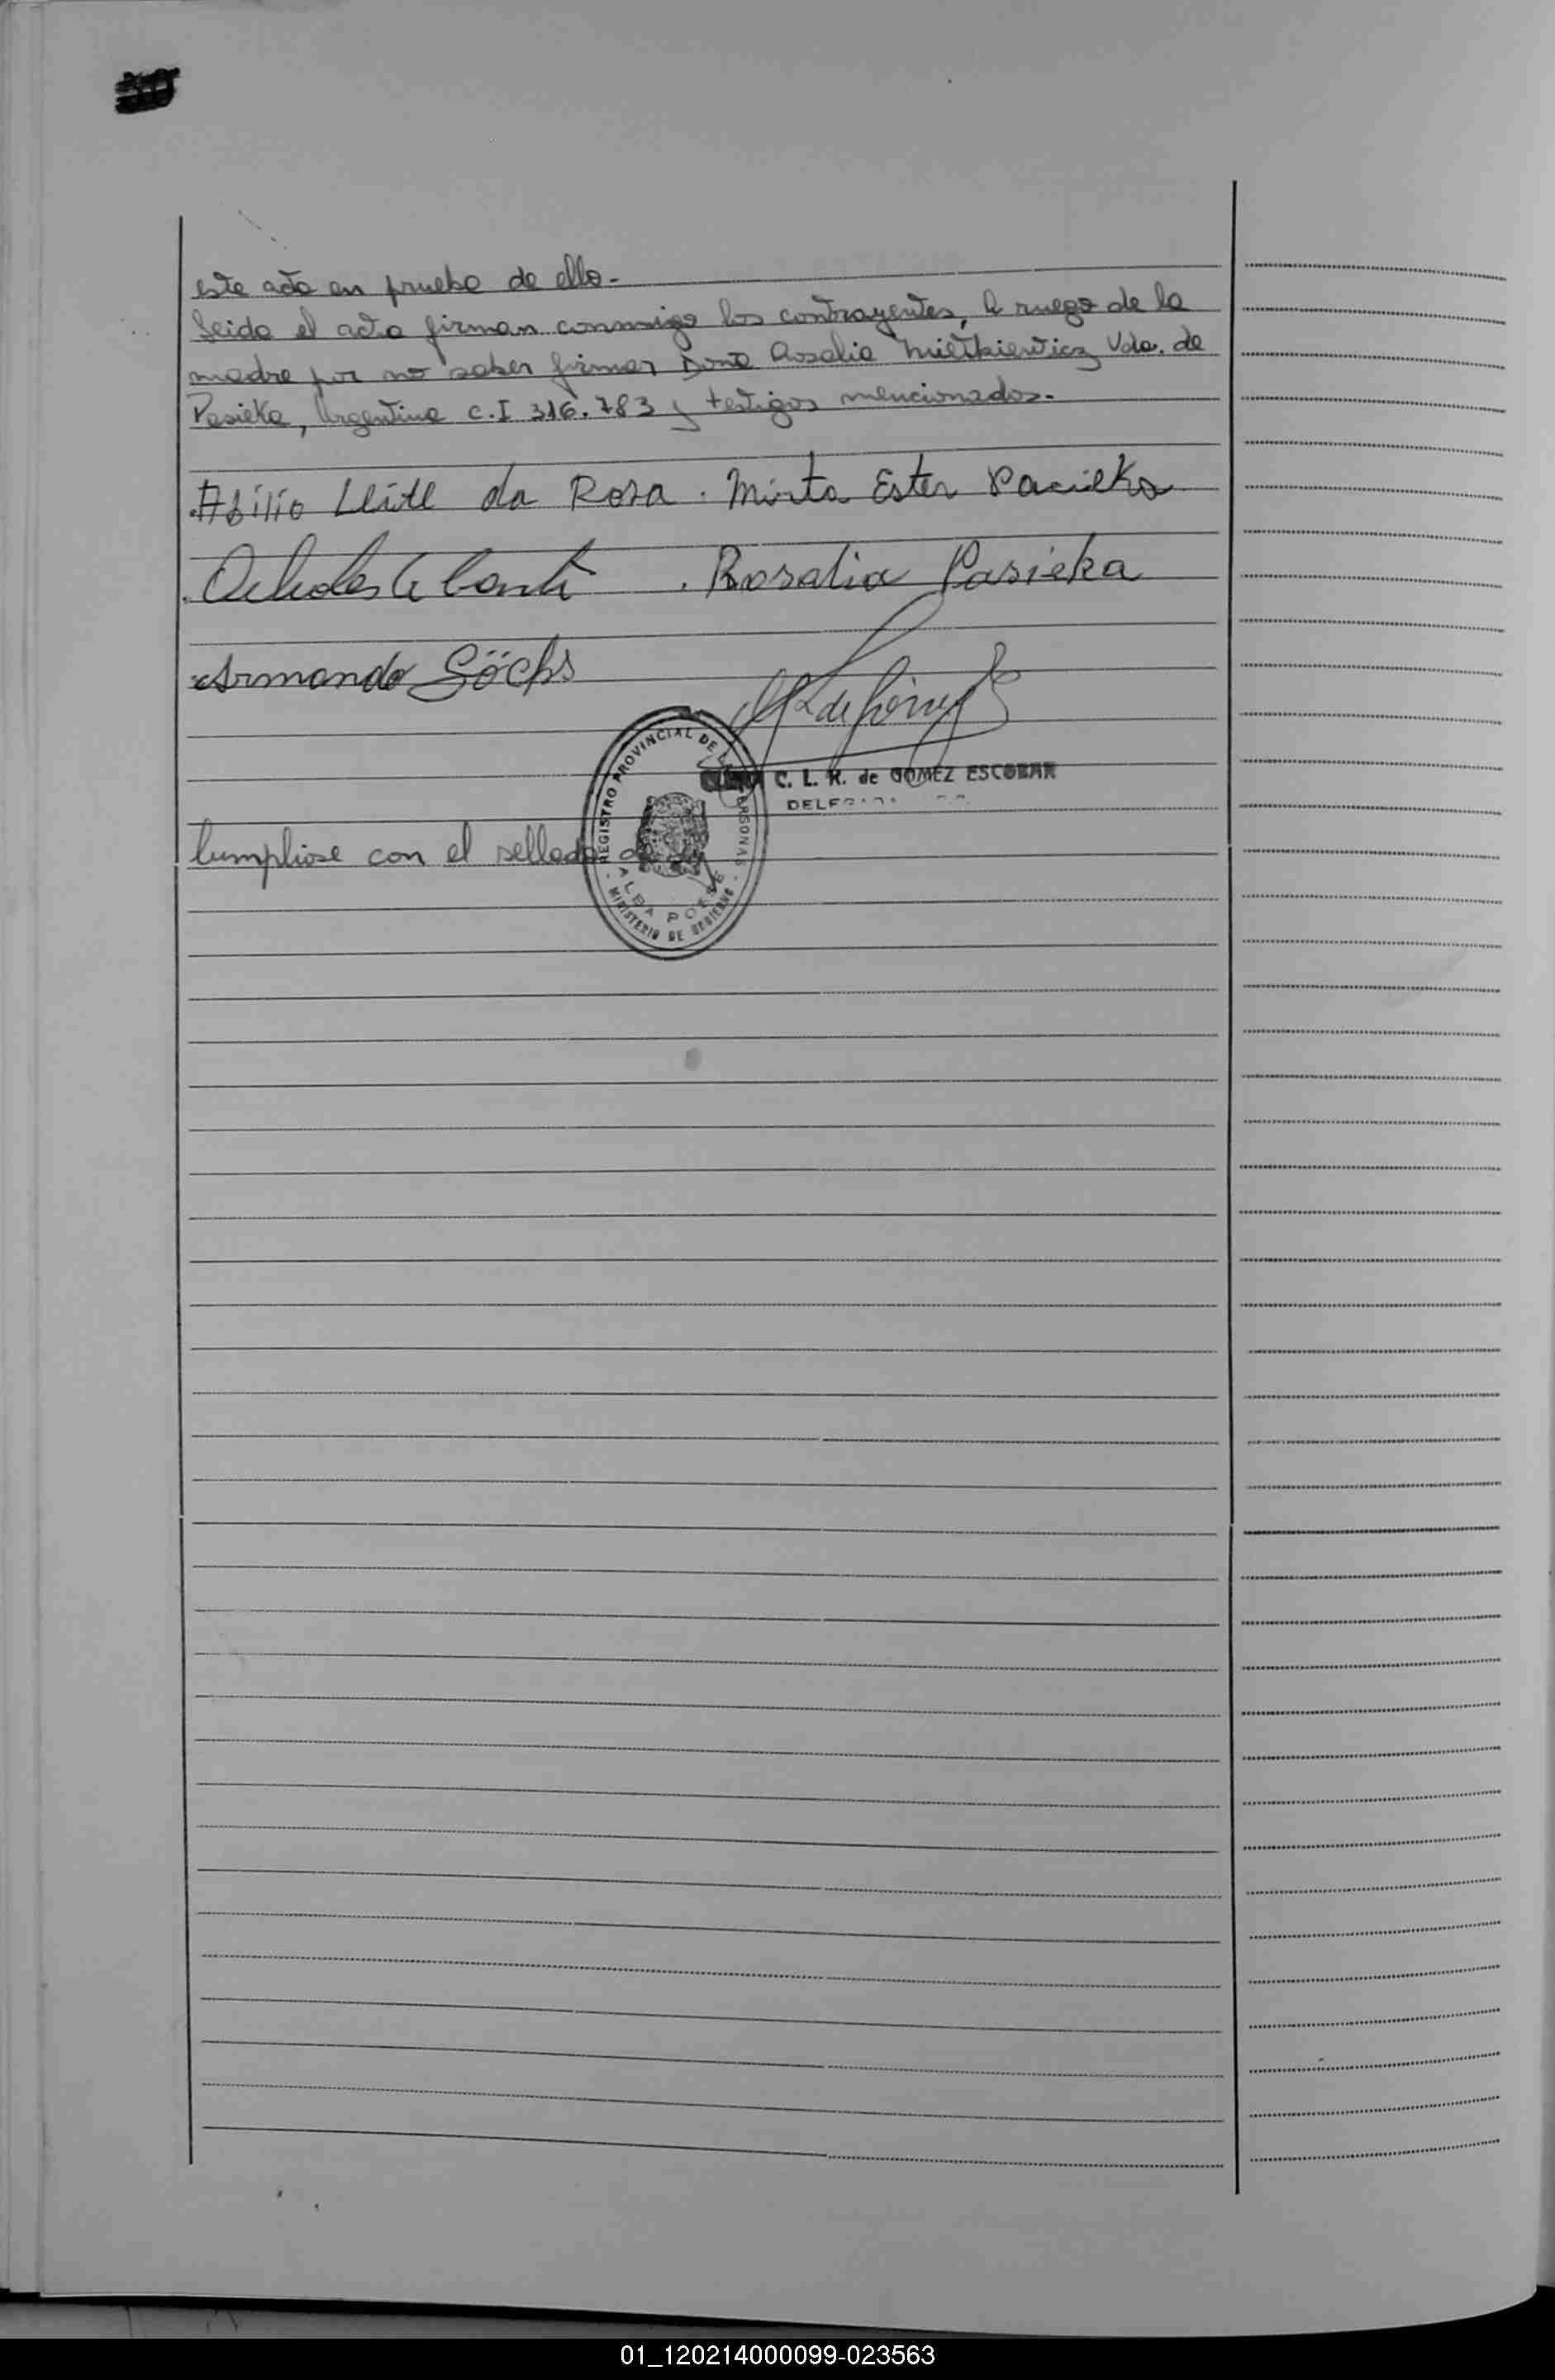 este acto en prueba de ello.-
Leida el acta firman conmmigo los contrayentes, A ruego de la
madre por no saber firmar Dona Rosalia Mieltkiewicz Vda. de
Pasieka, Argentina C.I 316.783 y testigos mencionados.-
Abilio Leite da Rosa . Mirta Ester Pacieka
. Rosalia Pasieka
Armando
C. L. R. de GOMEZ ESCOBAR
REGISTRO PROVINCIAL DE LAS PERSONAS
ALBA POSSE
MINISTERIO DE GOBIERNO
Cumpliose con el sellado de ley
01_120214000099-023563